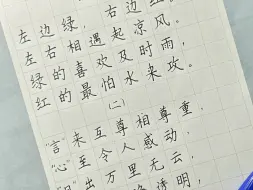 左边绿，右边红，
左右相遇起凉风。
绿的喜欢及时雨，
红的最怕水来攻。
（二）
"言"来互尊相尊重，
"心"至令人感动，
"日"出万里无云，
透明，